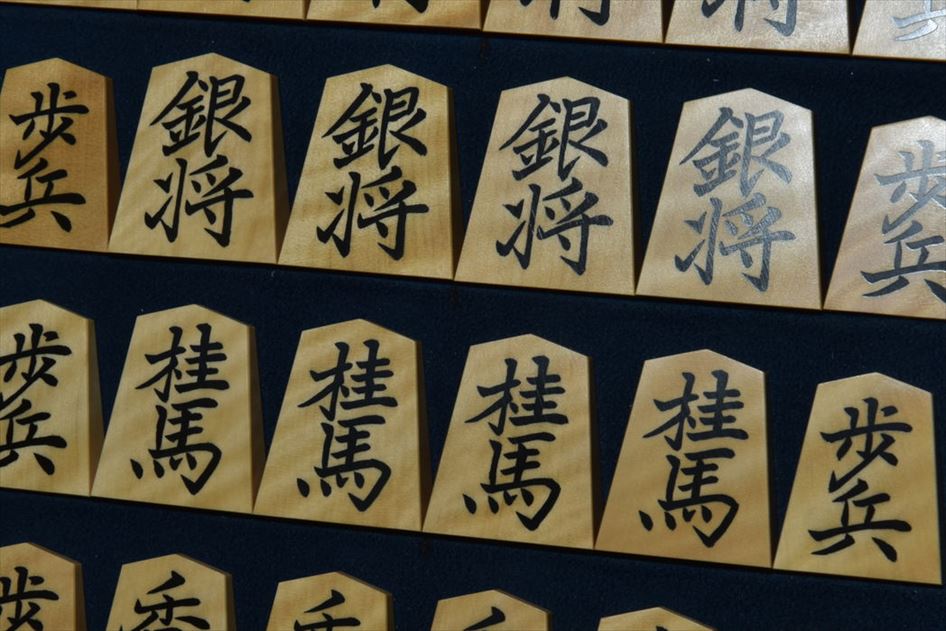 歩兵 銀将 銀将 銀将 銀将 歩兵
歩兵 桂馬 桂馬 桂馬 桂馬 歩兵
歩 香